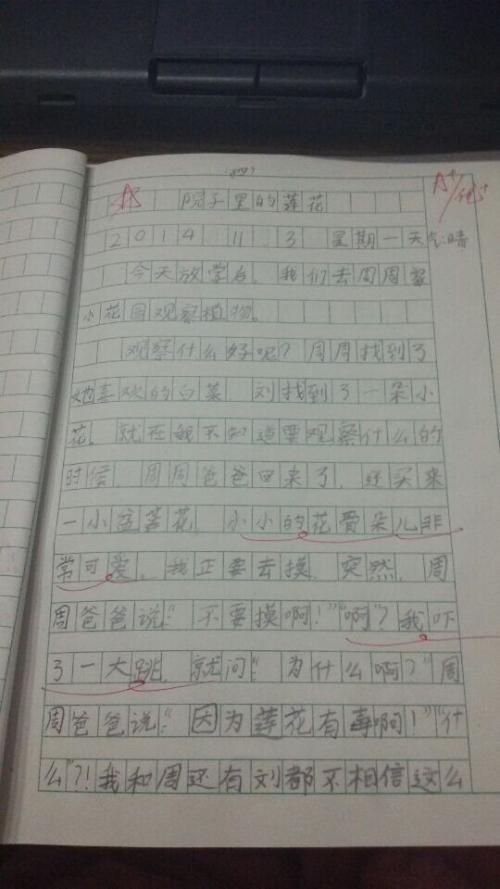 (四)
A
A+/优+
院子里的莲花
2014 11 3 星期一 天气:晴
今天放学后，我们去周周家
小花园观察植物。
观察什么好呢？周周找到了
她喜欢的白菜 刘找到了一朵小
花，就在我不知道要观察什么的
时候，周周爸爸回来了，还买来
一小盆莲花，小小的花骨朵儿非
常可爱，我正要去摸，突然，周
周爸爸说：“不要摸啊！”“啊？我吓
了一大跳，就问：“为什么啊？”周
周爸爸说：“因为莲花有毒啊！”“什
么”？！我和周还有刘都不相信这么